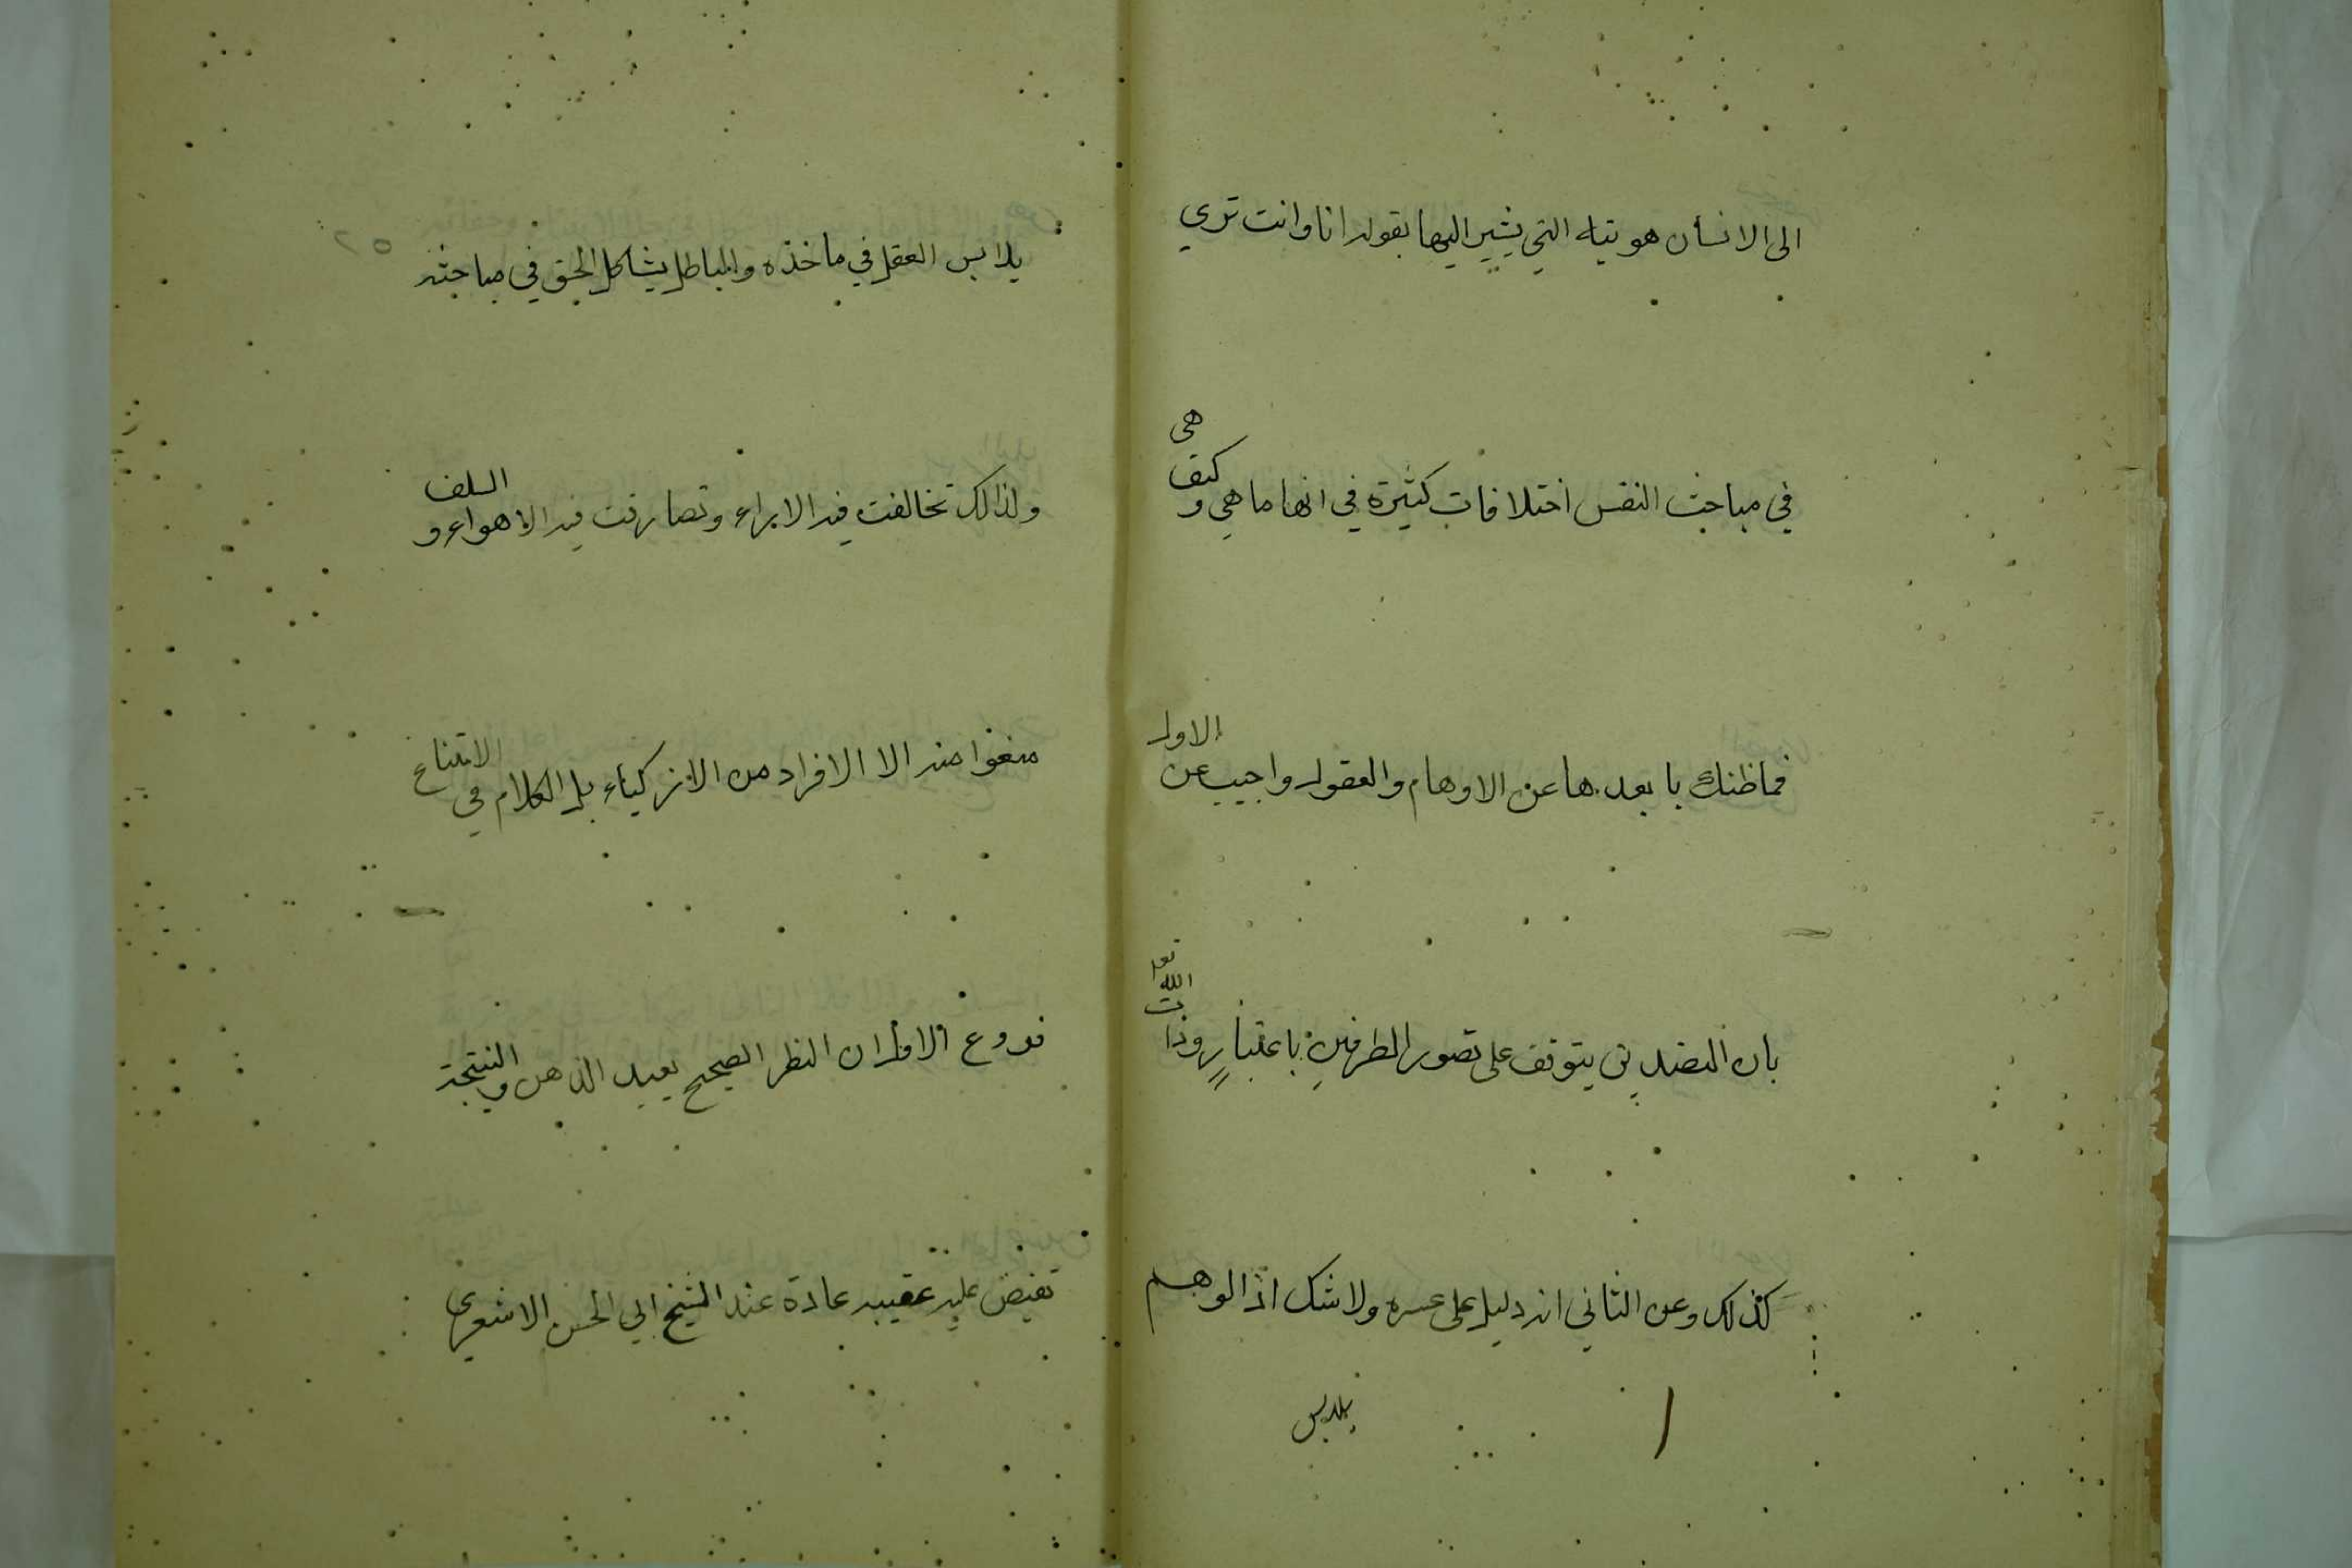 الى الانسان هويته التي يشير اليها بقوله انا وانت تري
في مباحث النفس اختلافات كثيرة في انها ما هي و كيف هى
فما ظنك بابعدها عن الاوهام والعقول واجيب عن الاول
بان التصديق يتوقف على تصور الطرفين باعتبار وذات الله تع
كذلك وعن الثاني انه دليل على عسره ولا شك اذ الوهم
يلابس
يلابس العقل في ماخذه والباطل يشاكل الحق في مباحثه
ولذلك تخالفت فيه الاراء وتصارفت فيه الاهواء و السلف
منعوا منه الا الافراد من الازكياء بل الكلام في الامتناع
فروع الاول ان النظر الصحيح يعيد الذهن والنتيجة
تفيض عليه عقيبه عادة عند الشيخ ابي الحسن الاشعري